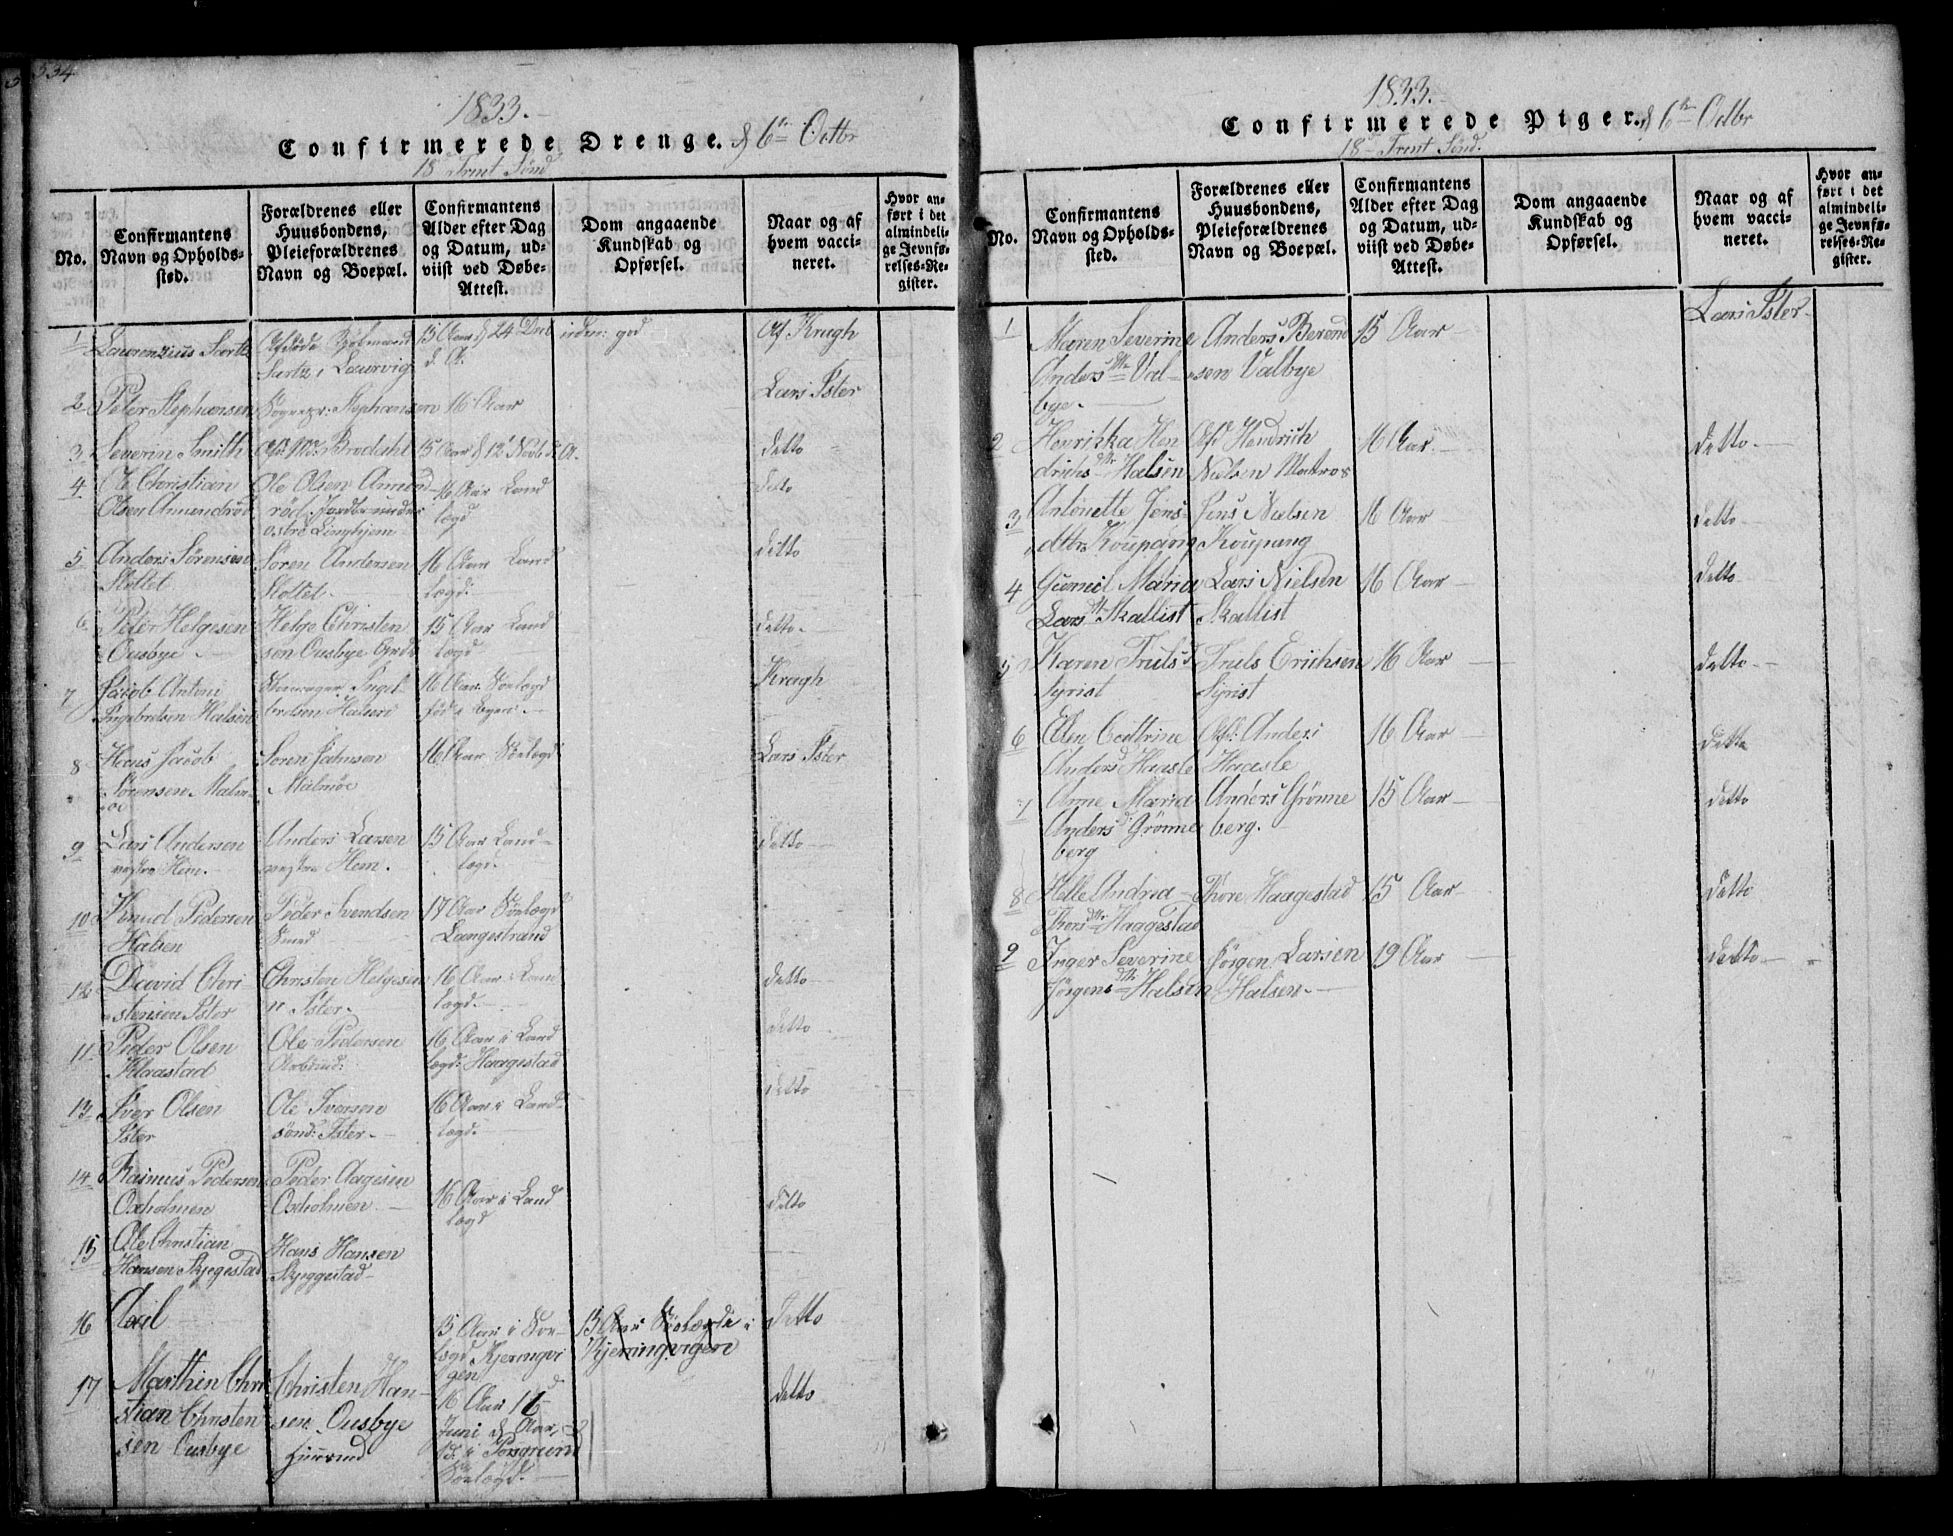 334
1833.
Confirmerede Drenge. d 6te Octbr
18 Trint Sønd
No.
Confirmantens Navn og Opholds-sted.
Forældrenes eller Huusbondens, Pleieforældrenes Navn og Boepæl.
Confirmantens Alder efter Dag og Datum, ud-viist ved Døbe-Attest.
Dom angaaende Kundskab og Opførsel.
Naar og af hvem vacci-neret.
Hvor an-ført i det almindeli-ge Jevnfø-relses-Re-gister.
1 Laurenzius Sartz
Sartz i Laurvig
15 Aar d 24 Decb
d. A.
god
Af Kragh
2 Peter Stephansen
Stephansen 16 Aar
Lars Ister
3 Severin Smith
15 Aar d 12 Novb d. A.
detto
4 Ole Christian
Olsen Amundrød
Ole Olsen Amund-
rød
østre Linghjem
16 Aar Land
lægd
detto
5 Anders Sørensen
Slottet
Søren Andersen
Slottet
16 Aar Land
lægd.
detto
6 Peter Helgesen
Ousbye
Helge Christen
sen Ousbye
15 Aar Land
lægd
detto
7 Jacob Antoni
Ingebretsen Halsen
Ingel
bretsen Halsen
16 Aar Søelægd
Kragh
8 Hans Jacob
Sørensen Malm-
øe
Søren Johnsen
Malmøe
16 Aar Søelægd
Lars Ister
9 Lars Andersen
vestre Hem.
Anders Larsen
vestre Hem.
15 Aar Land-
lægd.
detto
10 Knud Pedersen
Halsen
Peder Svendsen
Smed
17 Aar Søelægd
Langestrand
12 David Chri
stensen Ister
Christen Helgesen
n. Ister.
16 Aar i Lan
lægd.
detto
11 Peder Olsen
Klaastad
Ole Pedersen
16 Aar i Land
lægd: Haagestad
detto
13 Iver Olsen
Ister
Ole Iversen
sønd: Ister.
16 Aar i Land-
lægd.
detto
14 Rasmus Pedersen
Oxholmen
Peder Aagesen
Oxholmen
16 Aar i Land
lægd
detto
15 Ole Christian
Hansen Skjegestad
Hans Hansen
Skjeggestad
16 Axel
15 Aar i Søe-
lægd Kjeringvi
gen
15 Aar Søelægde i
Kjeringvigen
detto
17 Marthin Chri
stian Christen
sen Ousbye
Christen Han-
sen Ousbye
Huusmd
16 Aar 16
Juni d. Aar,
Porsgrund
Søelægd.
detto
1833.
Confirmerede Piger. d 6te Octbr
18 Trint Sønd.
No.
Confirmantens Navn og Opholds-sted.
Forældrenes eller Huusbondens, Pleieforældrenes Navn og Boepæl.
Confirmantens Alder efter Dag og Datum, ud-viist ved Døbe-Attest.
Dom angaaende Kundskab og Opførsel.
Naar og af hvem vacci-neret.
Hvor an-ført i det almindeli-ge Jevnfø-relses-Re-gister.
1 Maren Severine
Anders dtr Val-
bye.
Anders Berend
sen Valbye
15 Aar
Lars Ister
2 Henrikka Hen
drichs dtr Halsen
Afd Hendrich
Nielsen Matros
16 Aar.
detto
3 Antonette Jens-
dtr Koupang
Jens Nielsen
Koupang
16 Aar
detto
4 Gunnil Maria
Lars dtr Skallist
Lars Nielsen
Skallist
16 Aar
detto
5 Karen Truls d
Syrist
Truls Erichsen
Syrist
16 Aar
detto
6 Elen Cathrine
Anders d Haasle
Afd: Anders
Haasle
16 Aar
detto
7 Anne Maria
Anders d Grønne
berg
Anders Grønne
berg.
15 Aar
detto
8 Helle Andrea
Thors dtr Haagestad
Thore Haagestad
15 Aar
detto
9 Inger Severine
Jørgens dtr Halsen
Jørgen Larsen
Halsen.
19 Aar
detto